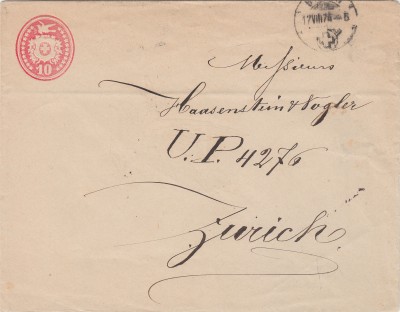 10
12 VIII 74 - 5
Messieurs
Haasenstein & Vogler
U.P. 4276
Zürich